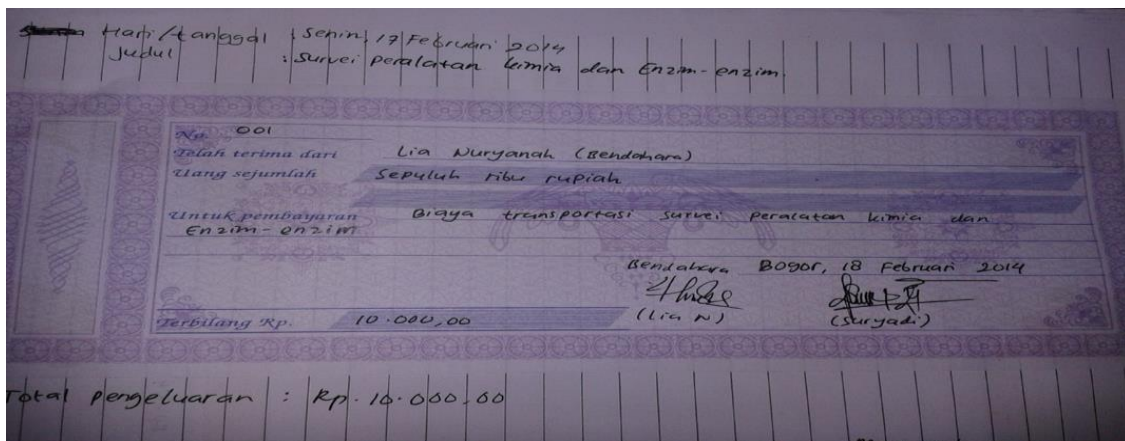 Hari/tanggal : Senin, 17 Februari 2014
Judul : Survei peralatan kimia dan Enzim-enzim.
No. 001
Telah terima dari Lia Nuryanah (Bendahara)
Uang sejumlah Sepuluh ribu rupiah
Untuk pembayaran Biaya transportasi survei peralatan kimia dan
Enzim-enzim
Bendahara Bogor, 18 Februari 2014
(Lia N) (Suryadi)
Terbilang Rp. 10.000,00
Total pengeluaran : Rp. 10.000,00